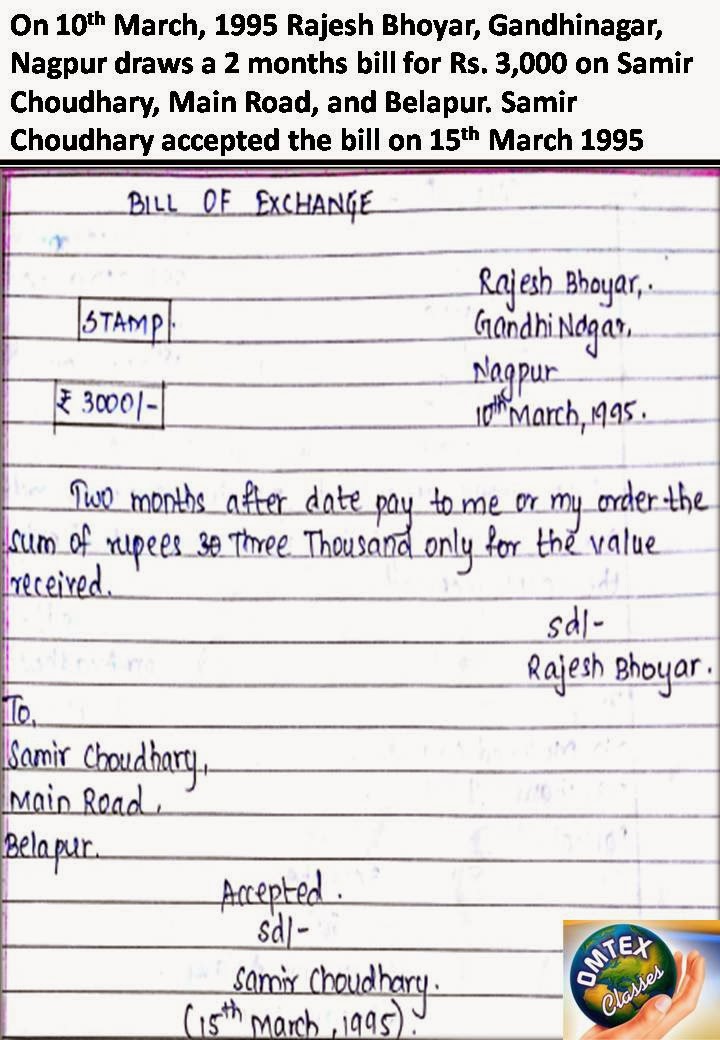 On 10th March, 1995 Rajesh Bhoyar, Gandhinagar,
Nagpur draws a 2 months bill for Rs. 3,000 on Samir
Choudhary, Main Road, and Belapur. Samir
Choudhary accepted the bill on 15th March 1995
BILL OF EXCHANGE
Rajesh Bhoyar,.
STAMP.
Gandhi Nagar,
Nagpur
₹ 3000/-
10th March, 1995.
Two months after date pay to me or my order the
sum of rupees 30 Three Thousand only for the value
received.
sd/-
Rajesh Bhoyar.
To,
Samir Choudhary,
Main Road,
Belapur.
Accepted.
sd/-
Samir Choudhary.
(15th March, 1995).
OMTEX
Classes